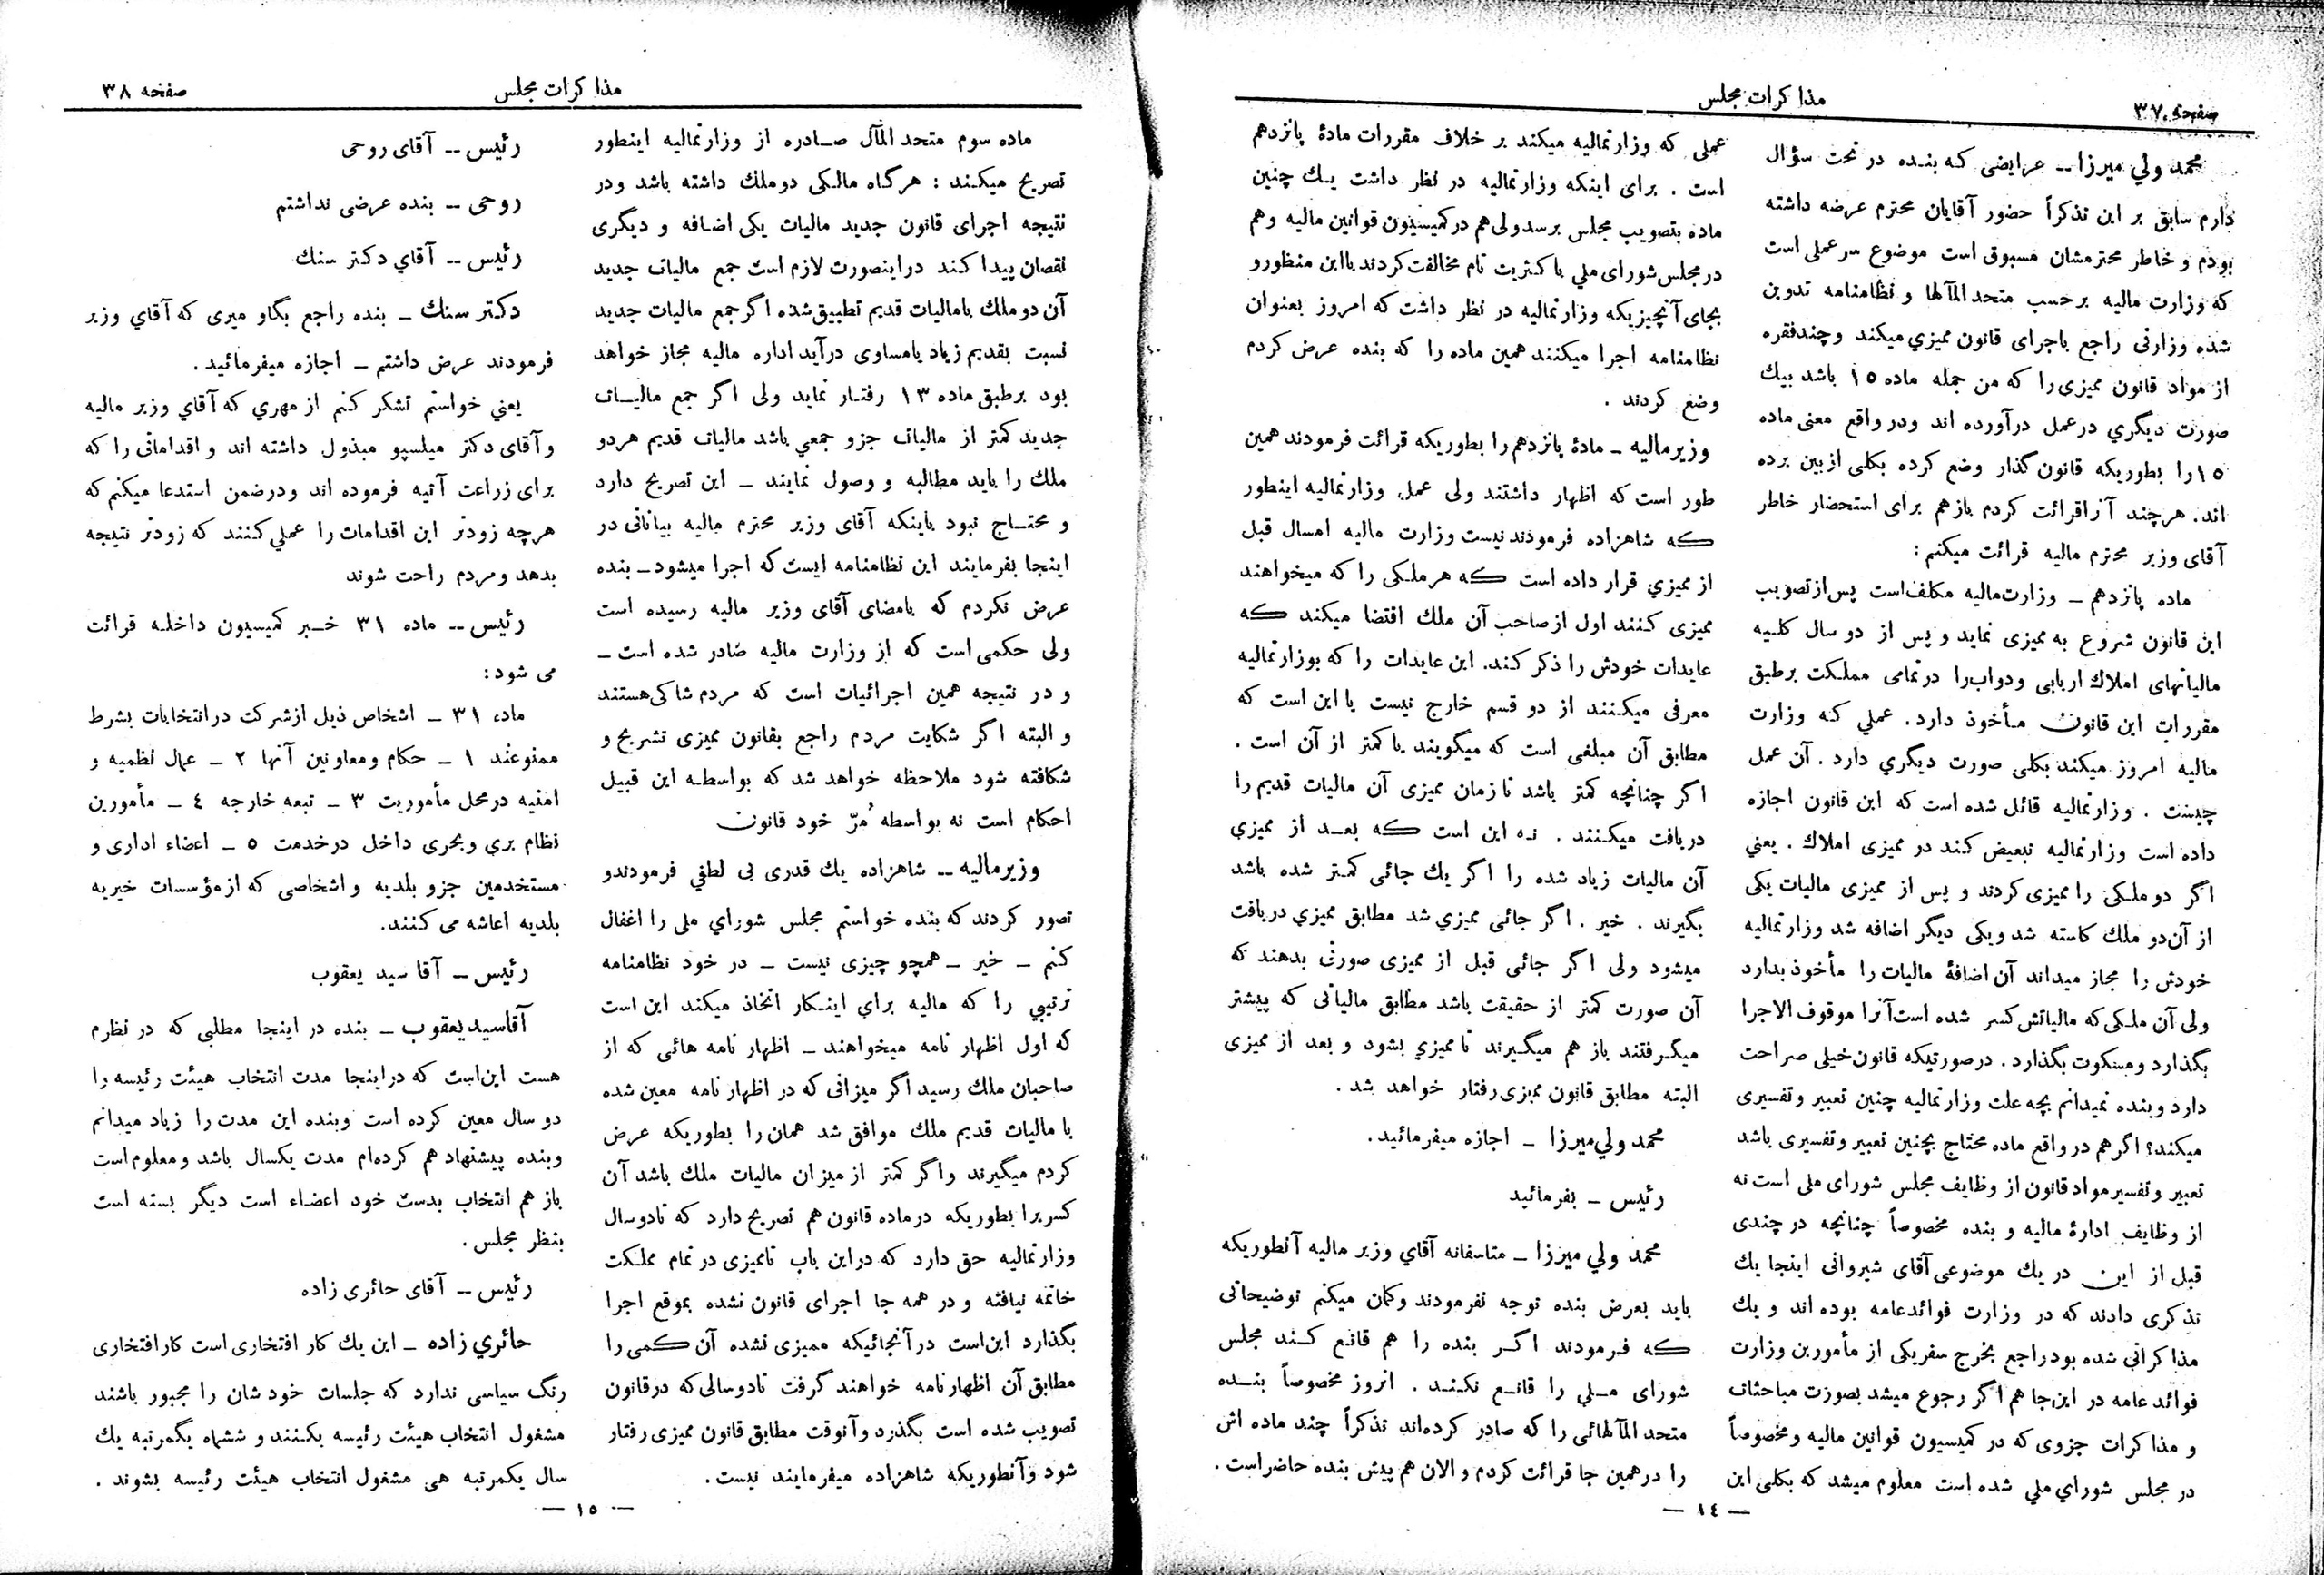 صفحه ۳۷
مذاکرات مجلس
محمد ولي ميرزا -- عرایضی که بنده در تحت سؤال
دارم سابق بر این تذکراً حضور آقایان محترم عرضه داشته
بودم و خاطر محترمشان مسبوق است موضوع سر عملی است
که وزارت مالیه بر حسب متحد المآلها و نظامنامه تدوین
شده وزارتی راجع باجرای قانون ممیزي میکند و چند فقره
از مواد قانون ممیزی را که من جمله ماده ۱۵ باشد بیك
صورت دیگري در عمل درآورده اند و در واقع معنی ماده
۱۵ را بطوریکه قانون گذار وضع کرده بکلی از بین برده
اند. هر چند آنرا قرائت کردم باز هم برای استحضار خاطر
آقای وزیر محترم مالیه قرائت میکنم :
ماده پانزدهم – وزارت مالیه مکلف است پس از تصویب
این قانون شروع به ممیزی نماید و پس از دو سال کلیه
مالیاتهای املاك اربابی و دواب را در تمامی مملکت بر طبق
مقررات این قانون مأخوذ دارد. عملي که وزارت
مالیه امروز میکند بکلی صورت دیگري دارد . آن عمل
چیست . وزارتمالیه قائل شده است که این قانون اجازه
داده است وزارتمالیه تبعیض کند در ممیزی املاك . یعني
اگر دو ملکی را ممیزی کردند و پس از ممیزی مالیات یکی
از آن دو ملك کاسته شد و یکی دیگر اضافه شد وزارتمالیه
خودش را مجاز میداند آن اضافهٔ مالیات را مأخوذ بدارد
ولی آن ملکی که مالیاتش کسر شده است آنرا موقوف الاجرا
بگذارد و مسکوت بگذارد . در صورتیکه قانون خیلی صراحت
دارد و بنده نمیدانم بچه علت وزارتمالیه چنین تعبیر و تفسیری
میکند؟ اگر هم در واقع ماده محتاج بچنین تعبیر و تفسیری باشد
تعبیر و تفسیر مواد قانون از وظایف مجلس شورای ملی است نه
از وظایف ادارهٔ مالیه و بنده مخصوصاً چنانچه در چندی
قبل از این در یك موضوعی آقای شیروانی اینجا یك
تذکری دادند که در وزارت فوائد عامه بوده اند و یك
مذاکراتی شده بود راجع بخرج سفر یکی از مأمورین وزارت
فوائد عامه در این جا هم اگر رجوع میشد بصورت مباحثات
و مذاکرات جزوی که در کمیسیون قوانین مالیه و مخصوصاً
در مجلس شوراي ملي شده است معلوم میشد که بکلی این
عملی که وزارتمالیه میکند بر خلاف مقررات مادهٔ پانزدهم
است . برای اینکه وزارتمالیه در نظر داشت یك چنین
ماده بتصویب مجلس برسد ولی هم در کمیسیون قوانین مالیه و هم
در مجلس شورای ملي با کثریت تام مخالفت کردند با این منظور و
بجای آنچیزیکه وزارتمالیه در نظر داشت که امروز بعنوان
نظامنامه اجرا میکنند همین ماده را که بنده عرض کردم
وضع کردند .
وزیر مالیه – مادهٔ پانزدهم را بطوریکه قرائت فرمودند همین
طور است که اظهار داشتند ولی عمل وزارتمالیه اینطور
که شاهزاده فرمودند نیست وزارت مالیه امسال قبل
از ممیزي قرار داده است که هر ملکی را که میخواهند
ممیزی کنند اول از صاحب آن ملك اقتضا میکند که
عایدات خودش را ذکر کند. این عایدات را که بوزارتمالیه
معرفی میکنند از دو قسم خارج نیست یا این است که
مطابق آن مبلغی است که میگویند یا کمتر از آن است .
اگر چنانچه کمتر باشد تا زمان ممیزی آن مالیات قدیم را
دریافت میکنند . نه این است که بعد از ممیزي
آن مالیات زیاد شده را اگر یك جائی کمتر شده باشد
بگیرند . خیر . اگر جائی ممیزي شد مطابق ممیزي دریافت
میشود ولی اگر جائی قبل از ممیزی صورتی بدهند که
آن صورت کمتر از حقیقت باشد مطابق مالیاتی که پیشتر
میگرفتند باز هم میگیرند تا ممیزي بشود و بعد از ممیزی
البته مطابق قانون ممیزی رفتار خواهد شد .
محمد ولي میرزا – اجازه میفرمائید.
رئیس – بفرمائید
محمد ولي میرزا – متاسفانه آقاي وزیر مالیه آنطوریکه
باید بعرض بنده توجه نفرمودند و گمان میکنم توضیحاتی
که فرمودند اگر بنده را هم قانع کند مجلس
شورای ملی را قانع نکند . آنروز مخصوصاً بنده
متحد المآلهائی را که صادر کرده‌اند تذکراً چند ماده اش
را در همین جا قرائت کردم و الان هم پیش بنده حاضر است .
— ۱٤ —
مذاکرات مجلس
صفحه ۳۸
ماده سوم متحد المآل صادره از وزارتمالیه اینطور
تصریح میکند : هر گاه مالکی دو ملك داشته باشد و در
نتیجه اجرای قانون جدید مالیات یکی اضافه و دیگری
نقصان پیدا کند در اینصورت لازم است جمع مالیات جدید
آن دو ملك با مالیات قدیم تطبیق شده اگر جمع مالیات جدید
نسبت بقدیم زیاد یا مساوی درآید اداره مالیه مجاز خواهد
بود بر طبق ماده ۱۳ رفتار نماید ولی اگر جمع مالیات
جدید کمتر از مالیات جزو جمعي باشد مالیات قدیم هر دو
ملك را باید مطالبه و وصول نمایند – این تصریح دارد
و محتاج نبود باینکه آقای وزیر محترم مالیه بیاناتی در
اینجا بفرمایند این نظامنامه ایست که اجرا میشود – بنده
عرض نکردم که بامضای آقای وزیر مالیه رسیده است
ولی حکمی است که از وزارت مالیه صادر شده است –
و در نتیجه همین اجرائیات است که مردم شاکی هستند
و البته اگر شکایت مردم راجع بقانون ممیزی تشریح و
شکافته شود ملاحظه خواهد شد که بواسطه این قبیل
احکام است نه بواسطه مُرّ خود قانون
وزیر مالیه -- شاهزاده یك قدری بی لطفي فرمودند و
تصور کردند که بنده خواستم مجلس شوراي ملی را اغفال
کنم – خیر – همچو چیزی نیست – در خود نظامنامه
ترتیبي را که مالیه براي اینکار اتخاذ میکند این است
که اول اظهار نامه میخواهند – اظهار نامه هائی که از
صاحبان ملك رسید اگر میزانی که در اظهار نامه معین شده
با مالیات قدیم ملك موافق شد همان را بطوریکه عرض
کردم میگیرند و اگر کمتر از میزان مالیات ملك باشد آن
کسر را بطوریکه در ماده قانون هم تصریح دارد که تا دو سال
وزارتمالیه حق دارد که در این باب تا ممیزی در تمام مملکت
خاتمه نیافته و در همه جا اجرای قانون نشده بموقع اجرا
بگذارد این است در آنجائیکه ممیزی نشده آن کمی را
مطابق آن اظهار نامه خواهند گرفت تا دو سالی که در قانون
تصویب شده است بگذرد و آنوقت مطابق قانون ممیزی رفتار
شود و آنطوریکه شاهزاده میفرمایند نیست .
رئیس -- آقای روحی
روحی -- بنده عرضی نداشتم
رئیس -- آقاي دکتر سنك
دکتر سنك – بنده راجع بگاو میری که آقاي وزیر
فرمودند عرض داشتم – اجازه میفرمائید .
یعني خواستم تشکر کنم از مهري که آقاي وزیر مالیه
و آقای دکتر میلسپو مبذول داشته اند و اقداماتی را که
برای زراعت آتیه فرموده اند و در ضمن استدعا میکنم که
هر چه زودتر این اقدامات را عملي کنند که زودتر نتیجه
بدهد و مردم راحت شوند
رئیس -- ماده ۳۱ خبر کمیسیون داخله قرائت
می شود :
ماده ۳۱ – اشخاص ذیل از شرکت در انتخابات بشرط
ممنوعند ۱ – حکام و معاونین آنها ۲ – عمال نظمیه و
امنیه در محل مأموریت ۳ – تبعه خارجه ٤ – مأمورین
نظام بري و بحری داخل در خدمت ۵ – اعضاء اداری و
مستخدمین جزو بلدیه و اشخاصی که از مؤسسات خیریه
بلدیه اعاشه می کنند.
رئیس – آقا سید یعقوب
آقا سید یعقوب – بنده در اینجا مطلبی که در نظرم
هست این است که در اینجا مدت انتخاب هیئت رئیسه را
دو سال معین کرده است و بنده این مدت را زیاد میدانم
و بنده پیشنهاد هم کرده‌ام مدت یکسال باشد و معلوم است
باز هم انتخاب بدست خود اعضاء است دیگر بسته است
بنظر مجلس .
رئیس -- آقای حائری زاده
حائري زاده – این یك کار افتخاری است کار افتخاری
رنگ سیاسی ندارد که جلسات خودشان را مجبور باشند
مشغول انتخاب هیئت رئیسه بکنند و ششماه یکمرتبه یك
سال یکمرتبه هی مشغول انتخاب هیئت رئیسه بشوند .
— ۱۵ —